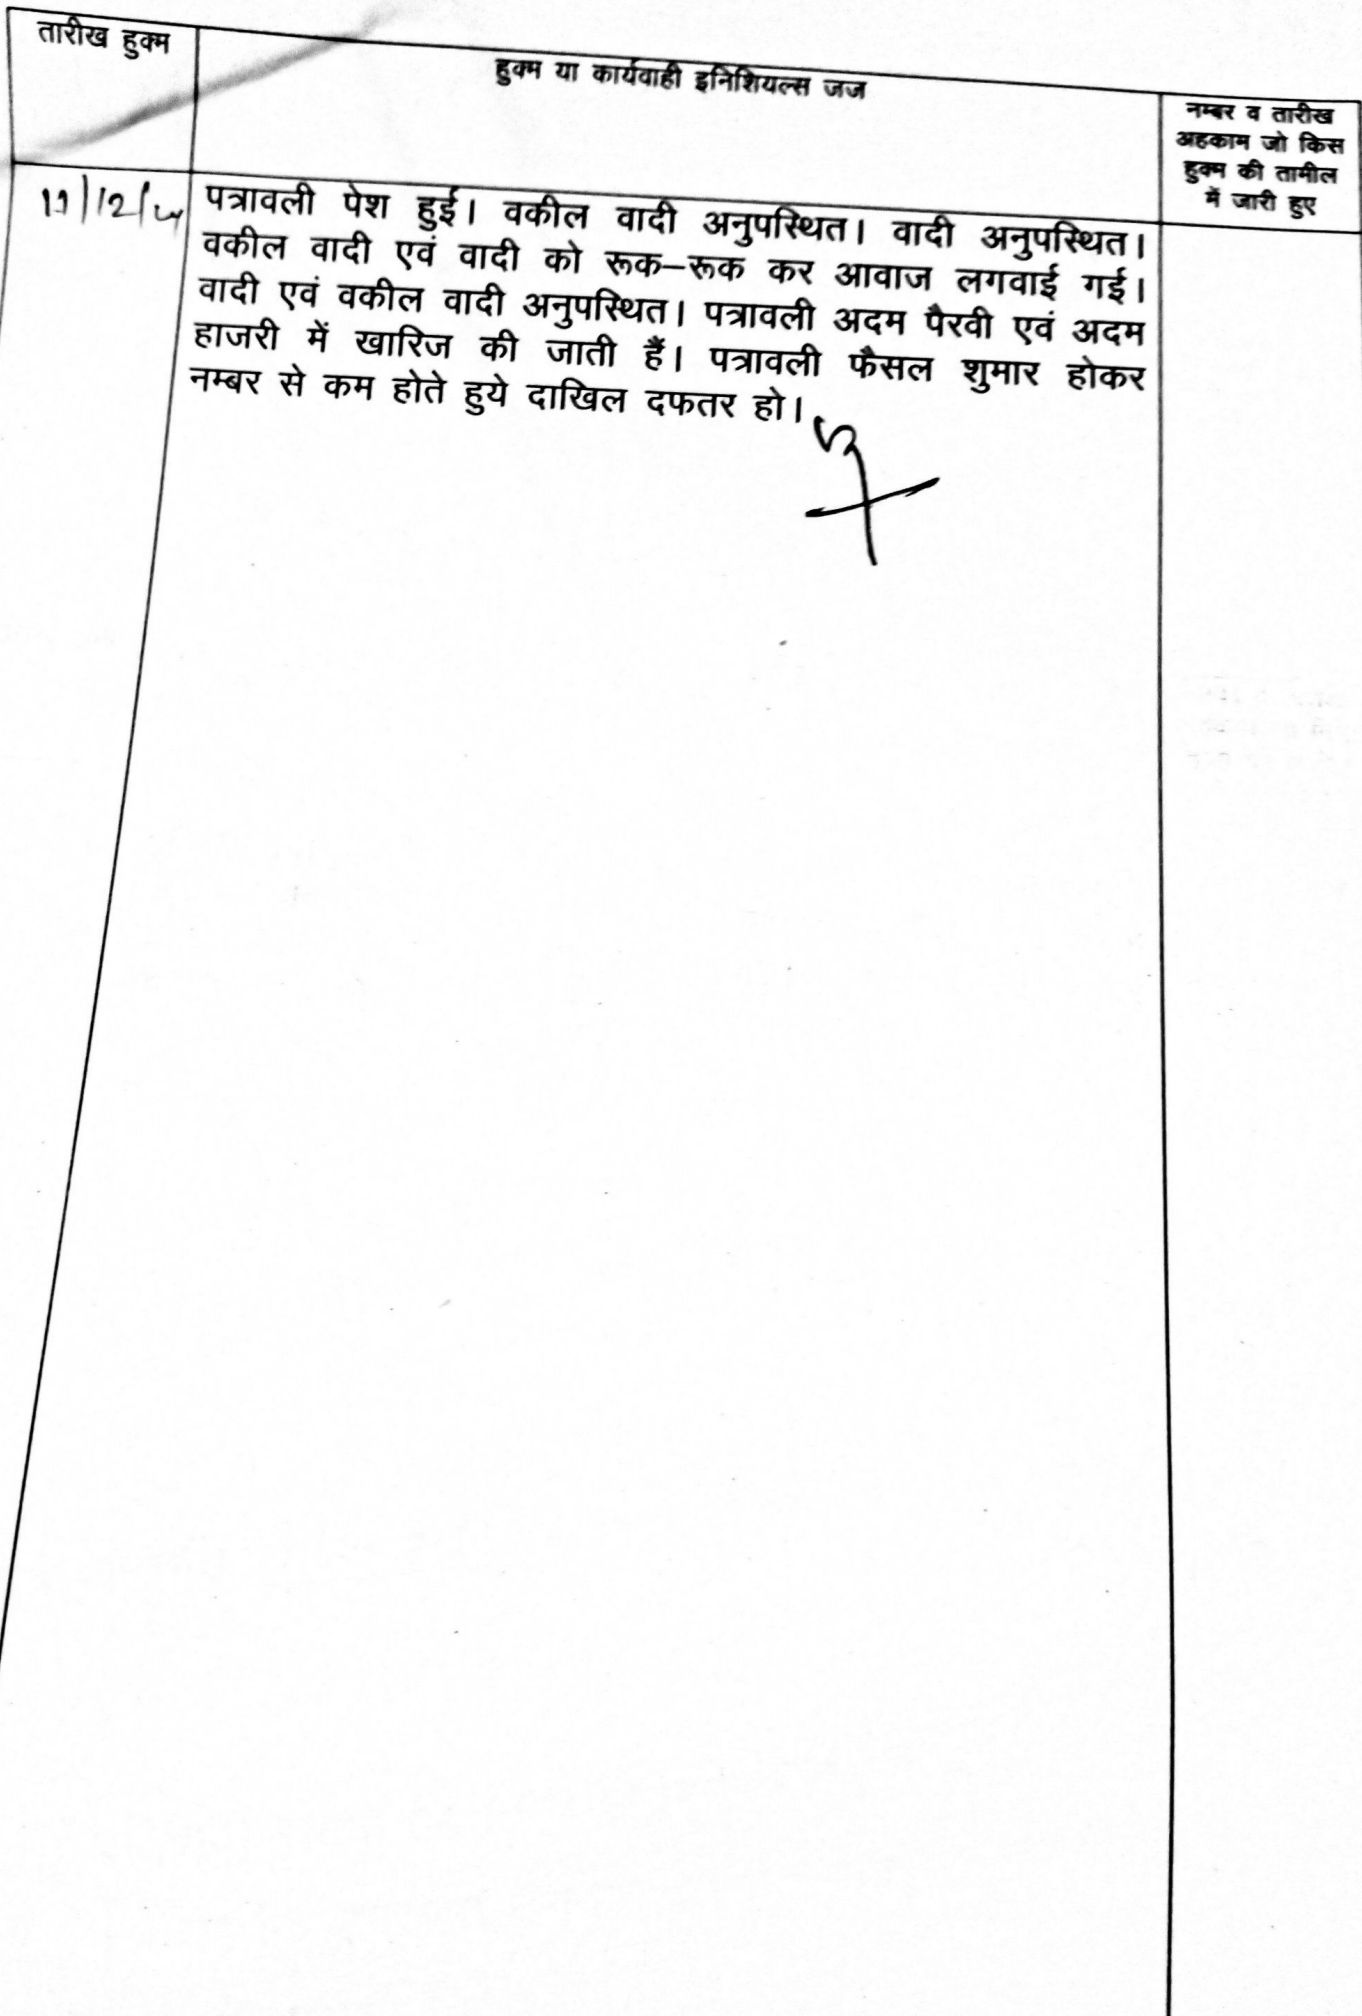 तारीख हुक्म
हुक्म या कार्यवाही इनिशियल्स जज
नम्बर व तारीख
अहकाम जो किस
हुक्म की तामील
में जारी हुए
11/12/
पत्रावली पेश हुई। वकील वादी अनुपस्थित। वादी अनुपस्थित।
वकील वादी एवं वादी को रूक–रूक कर आवाज लगवाई गई।
वादी एवं वकील वादी अनुपस्थित। पत्रावली अदम पैरवी एवं अदम
हाजरी में खारिज की जाती हैं। पत्रावली फैसल शुमार होकर
नम्बर से कम होते हुये दाखिल दफतर हो।